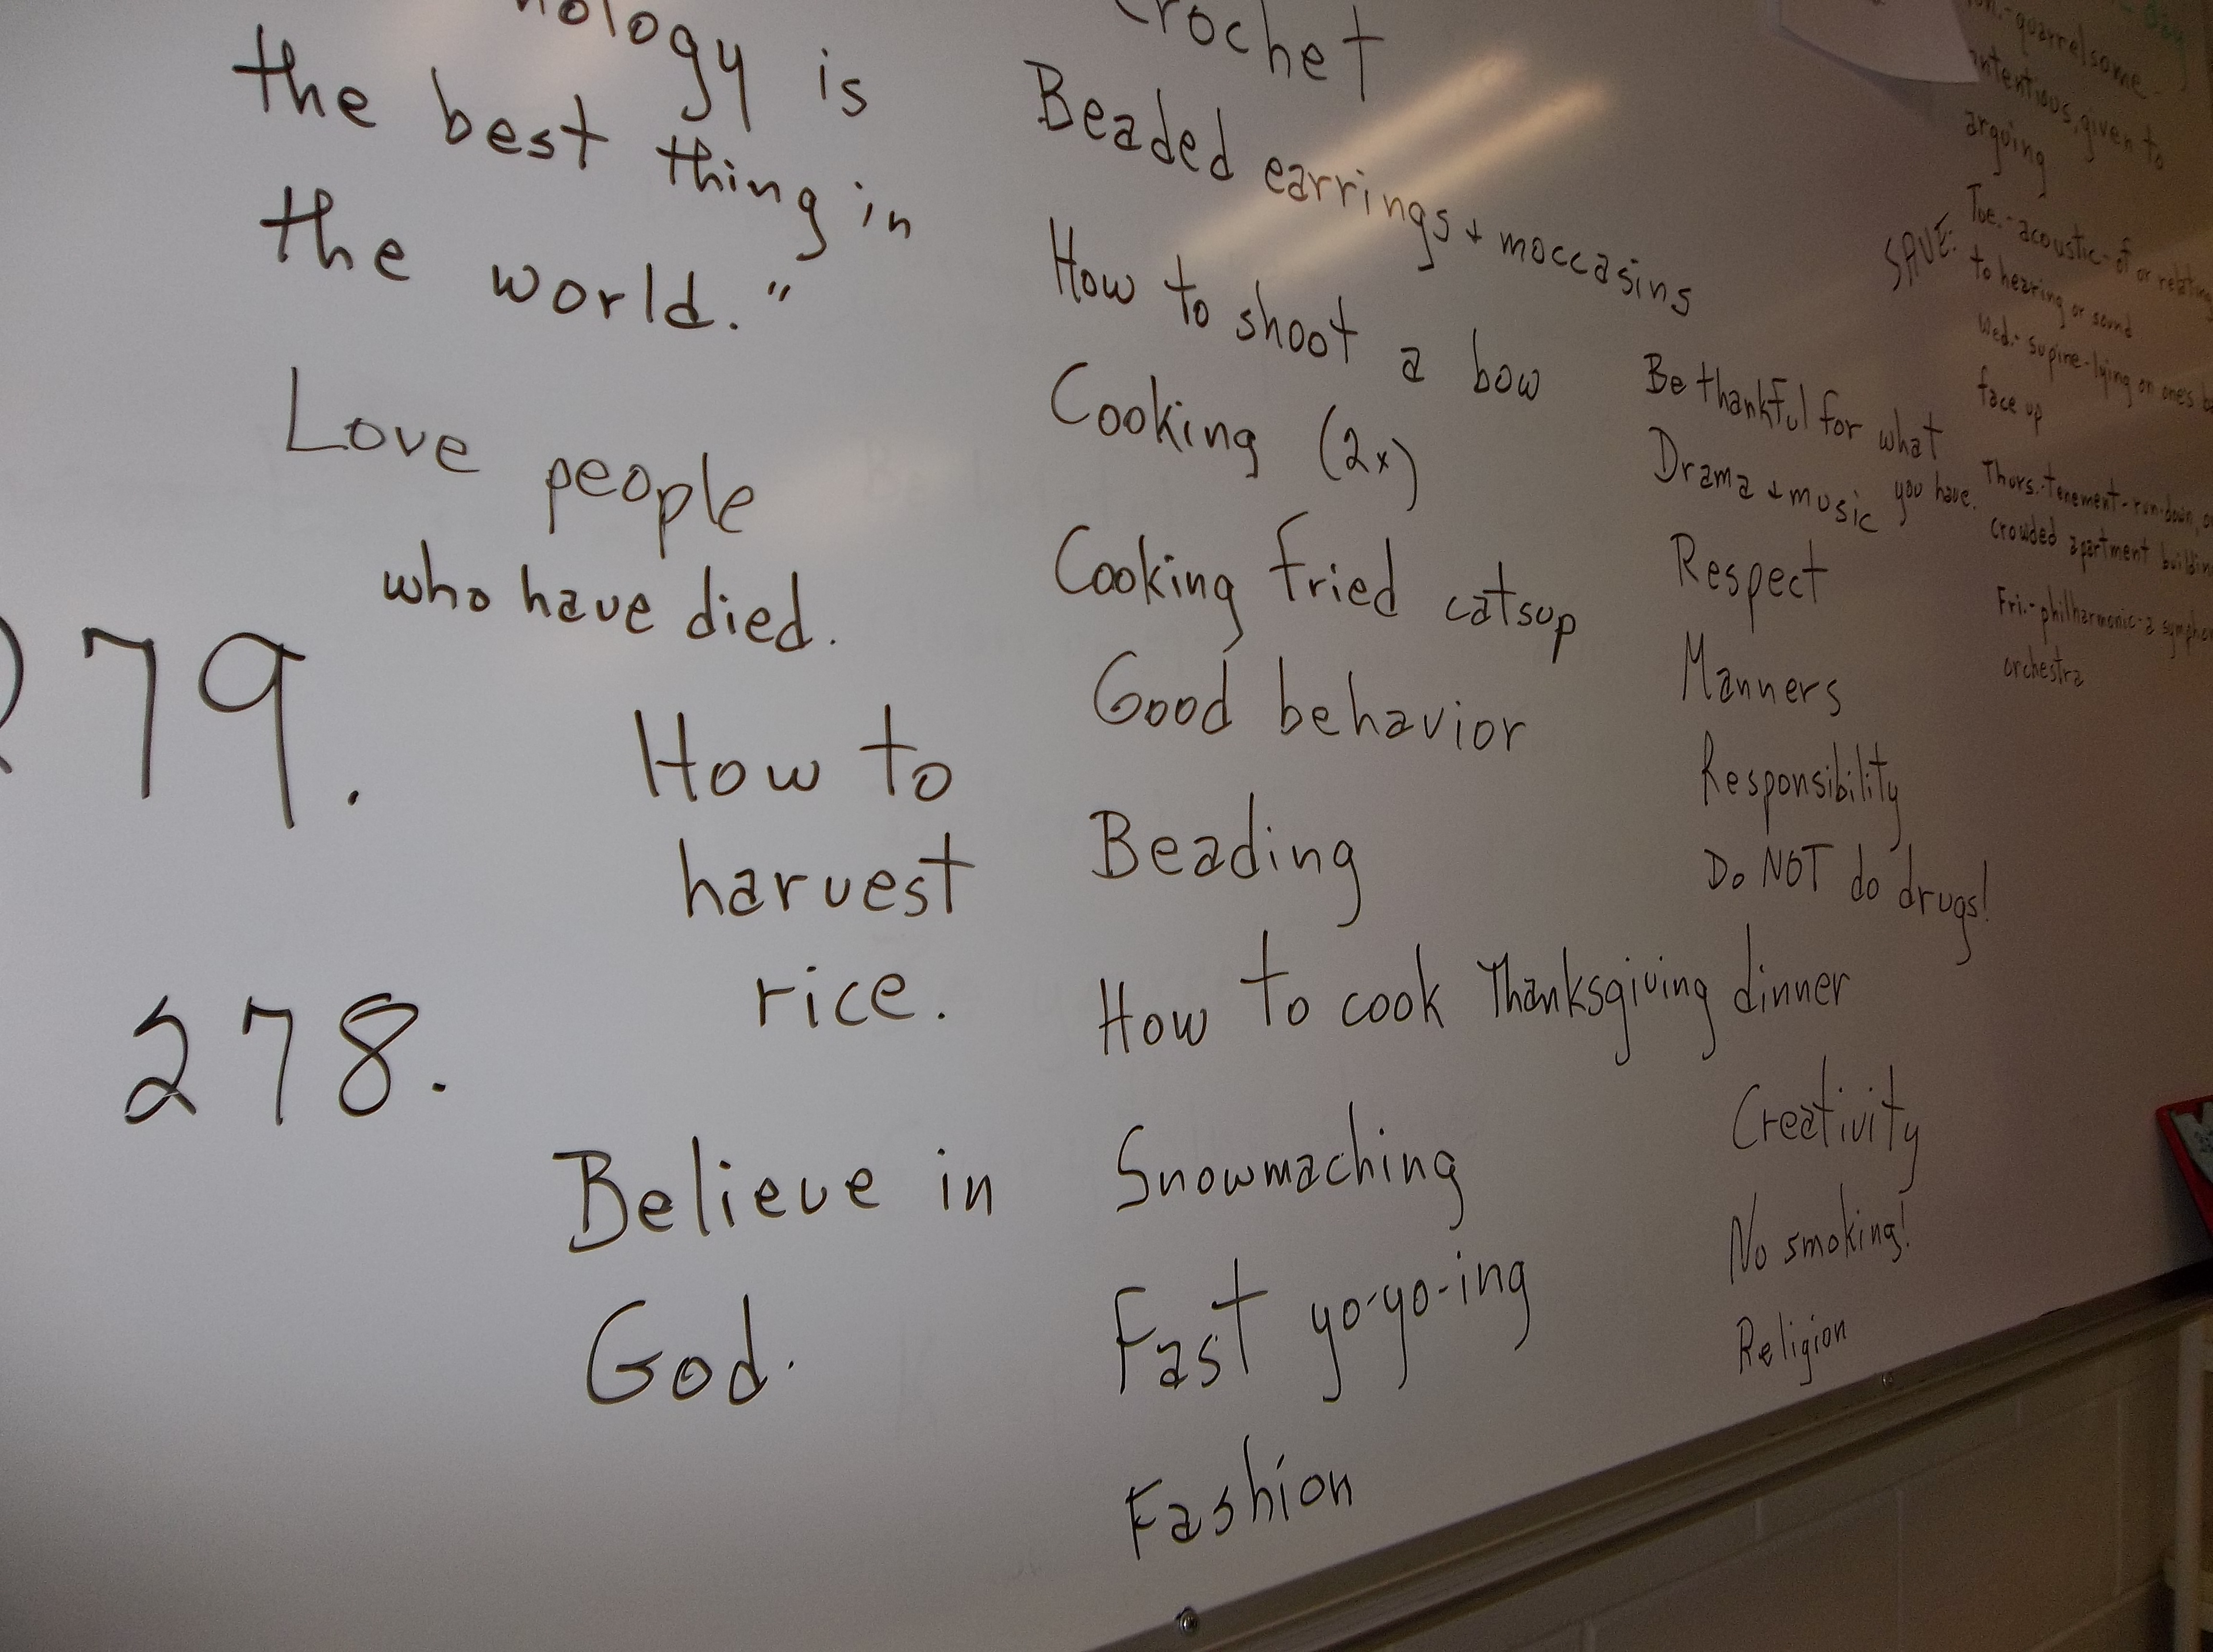 is
the best thing in
the world."
Love people
who have died.
79.
How to
harvest
rice.
278.
Believe in
God.
Beaded earrings + moccasins
How to shoot a bow
Cooking (2x)
Cooking fried catsup
Good behavior
Beading
How to cook Thanksgiving dinner
Snowmaching
Fast yo-yo-ing
Fashion
Be thankful for what
you have.
Drama + music
Respect
Manners
Responsibility
Do NOT do drugs!
Creativity
No smoking!
Religion
quarrelsome-
given to
arguing
SAVE:
Tue.-acoustic-of or relating
to hearing or sound
Wed.-supine-lying on one's
face up
Thurs.-tenement-run-down,
crowded apartment
Fri.-philharmonic-a
orchestra